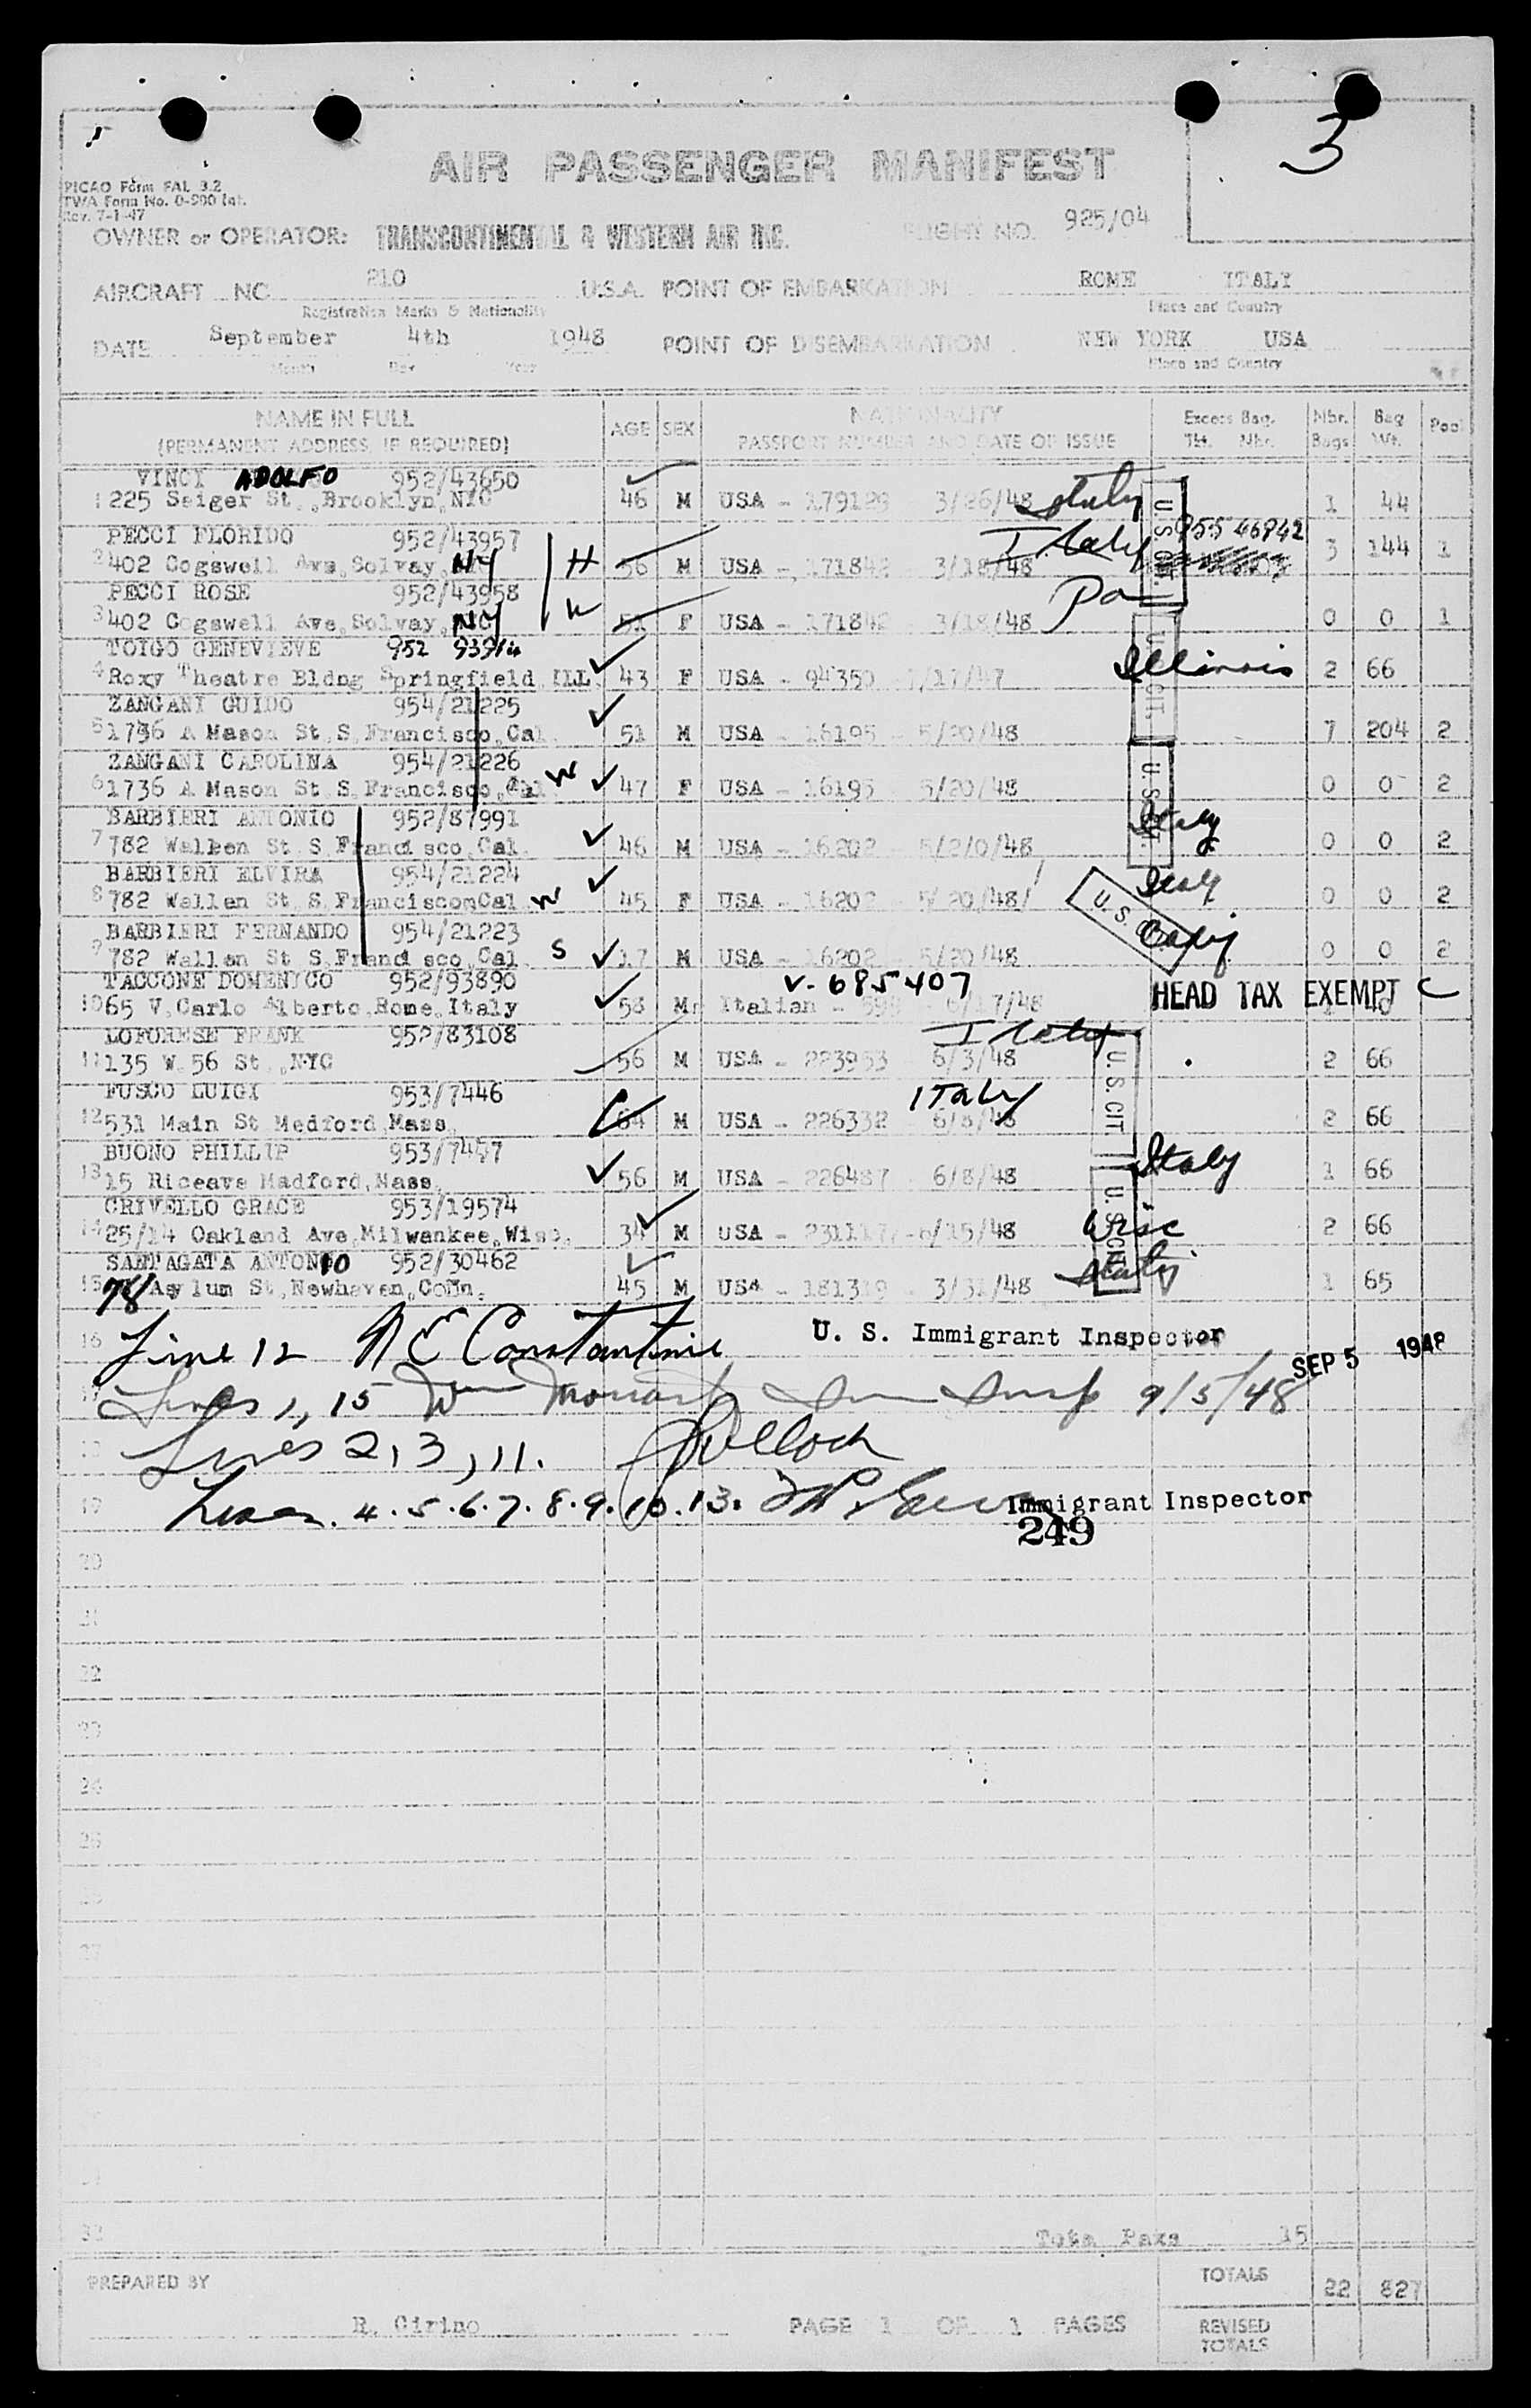 3
AIR PASSENGER MANIFEST
PICAO Form FAL 3.2
TWA Form No. 0-900 Int.
Rev. 7-1-47
OWNER or OPERATOR: TRANSCONTINENTAL & WESTERN AIR INC. FLIGHT NO. 925/04
AIRCRAFT NO. 210 U.S.A. POINT OF EMBARKATION ROME ITALY
Registration Marks & Nationality Place and Country
DATE September 4th 1948 POINT OF DISEMBARKATION NEW YORK USA
Month Day Year Place and Country
NAME IN FULL AGE SEX NATIONALITY Excess Bag. Nbr. Bag Pool
(PERMANENT ADDRESS, IF REQUIRED) PASSPORT NUMBER AND DATE OF ISSUE Wt. Nbr. Bags Wt.
VINCI ADOLFO 952/43650
1 225 Seiger St., Brooklyn, NYC 46 M USA - 179129 3/26/48 Italy U.S. CIT. 1 44
PECCI FLORIDO 952/43957 Italy 955 46942
2 402 Cogswell Ave, Solvay, NY H 56 M USA - 171842 3/18/48 3 144 1
PECCI ROSE 952/43958 Pa
3 402 Cogswell Ave, Solvay, NY W 51 F USA - 171842 3/18/48 0 0 1
TOIGO GENEVIEVE 952 93914
4 Roxy Theatre Bldng Springfield ILL 43 F USA - 94350 /17/47 Illinois U.S. CIT. 2 66
ZANGANI GUIDO 954/21225
5 1736 A Mason St. S. Francisco, Cal. 51 M USA - 16195 5/20/48 7 204 2
ZANGANI CAROLINA 954/21226
6 1736 A Mason St S. Francisco, Cal W 47 F USA - 16195 5/20/48 U.S. CIT. 0 0 2
BARBIERI ANTONIO 952/87991
7 782 Walleen St. S. Francisco, Cal. 46 M USA - 16202 5/2/0/48 Italy 0 0 2
BARBIERI ELVIRA 954/21224
8 782 Wallen St. S. FranciscomCal W 45 F USA - 16202 5/20/48/ Italy 0 0 2
BARBIERI FERNANDO 954/21223
9 782 Wallen St S. Francisco, Cal. S 17 M USA - 16202 5/20/48 U.S. 0 0 2
TACCONE DOMENICO 952/93890 V-685407
10 65 V. Carlo Alberto, Rome, Italy 58 M Italian - /17/48 HEAD TAX EXEMPT C 1 40
LOFORESE FRANK 952/83108 Italy
11 135 W. 56 St., NYC 56 M USA - 223953 6/3/48 U.S. CIT 2 66
FUSCO LUIGI 953/7446 ITALY
12 531 Main St Medford Mass. 64 M USA - 226332 6/8/48 2 66
BUONO PHILLIP 953/7447
13 15 Riceave Madford, Mass. 56 M USA - 226487 6/8/48 Italy 1 66
CRIVELLO GRACE 953/19574
14 25/14 Oakland Ave, Milwankee, Wisc. 34 M USA - 231117 - 6/15/48 Wisc U.S. CIT 2 66
SANTAGATA ANTONIO 952/30462
15 78 Asylum St, Newhaven, Conn. 45 M USA - 181319 3/31/48 Italy 1 65
16 Line 12 N E Constantine U. S. Immigrant Inspector
SEP 5 1948
17 Lines 1, 15 Wm Imm Insp 9/5/48
18 Lines 2, 3, 11.
19 Lines. 4.5.6.7.8.9.10.13. Immigrant Inspector
249
20
21
22
23
24
25
26
27
32 Tota Paxs 15
PREPARED BY TOTALS 22 827
R. Cirino PAGE 1 OF 1 PAGES REVISED TOTALS